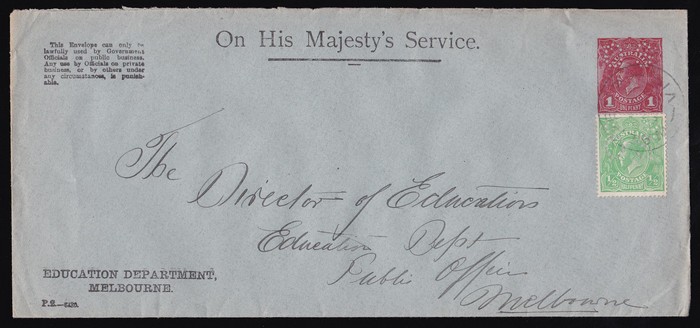 On His Majesty's Service.
This Envelope can only be
lawfully used by Government
Officials on public business.
Any use by Officials on private
business, or by others under
any circumstances, is punish-
able.
AUSTRALIA
POSTAGE
1 ONE PENNY 1
AUSTRALIA
POSTAGE
½ HALFPENNY ½
The
Director of Education
Education Dept
Public Office
Melbourne
EDUCATION DEPARTMENT,
MELBOURNE.
P.2.